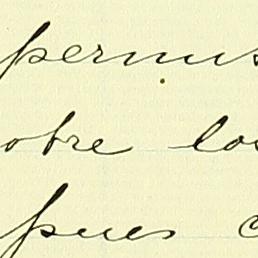 permis
obre los
pues c